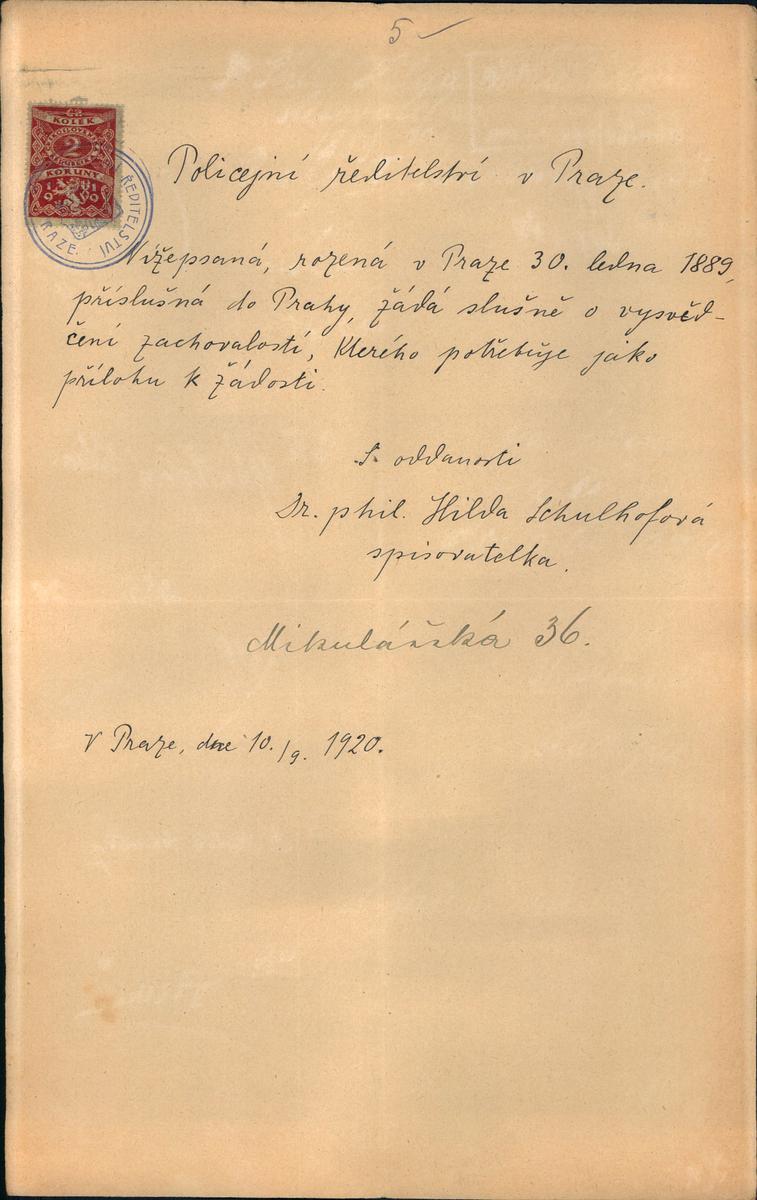 5
ČS
KOLEK
2
KORUNY
1910
ŘEDITELSTVÍ
PRAZE
Policejní ředitelství v Praze.
Nížepsaná, rozená v Praze 30. ledna 1889,
příslušná do Prahy, žádá slušně o vysvěd-
čení zachovalosti, kterého potřebuje jako
přílohu k žádosti.
S oddaností
Dr. phil. Hilda Schulhofová
spisovatelka.
Mikulášská 36.
V Praze, dne 10./9. 1920.